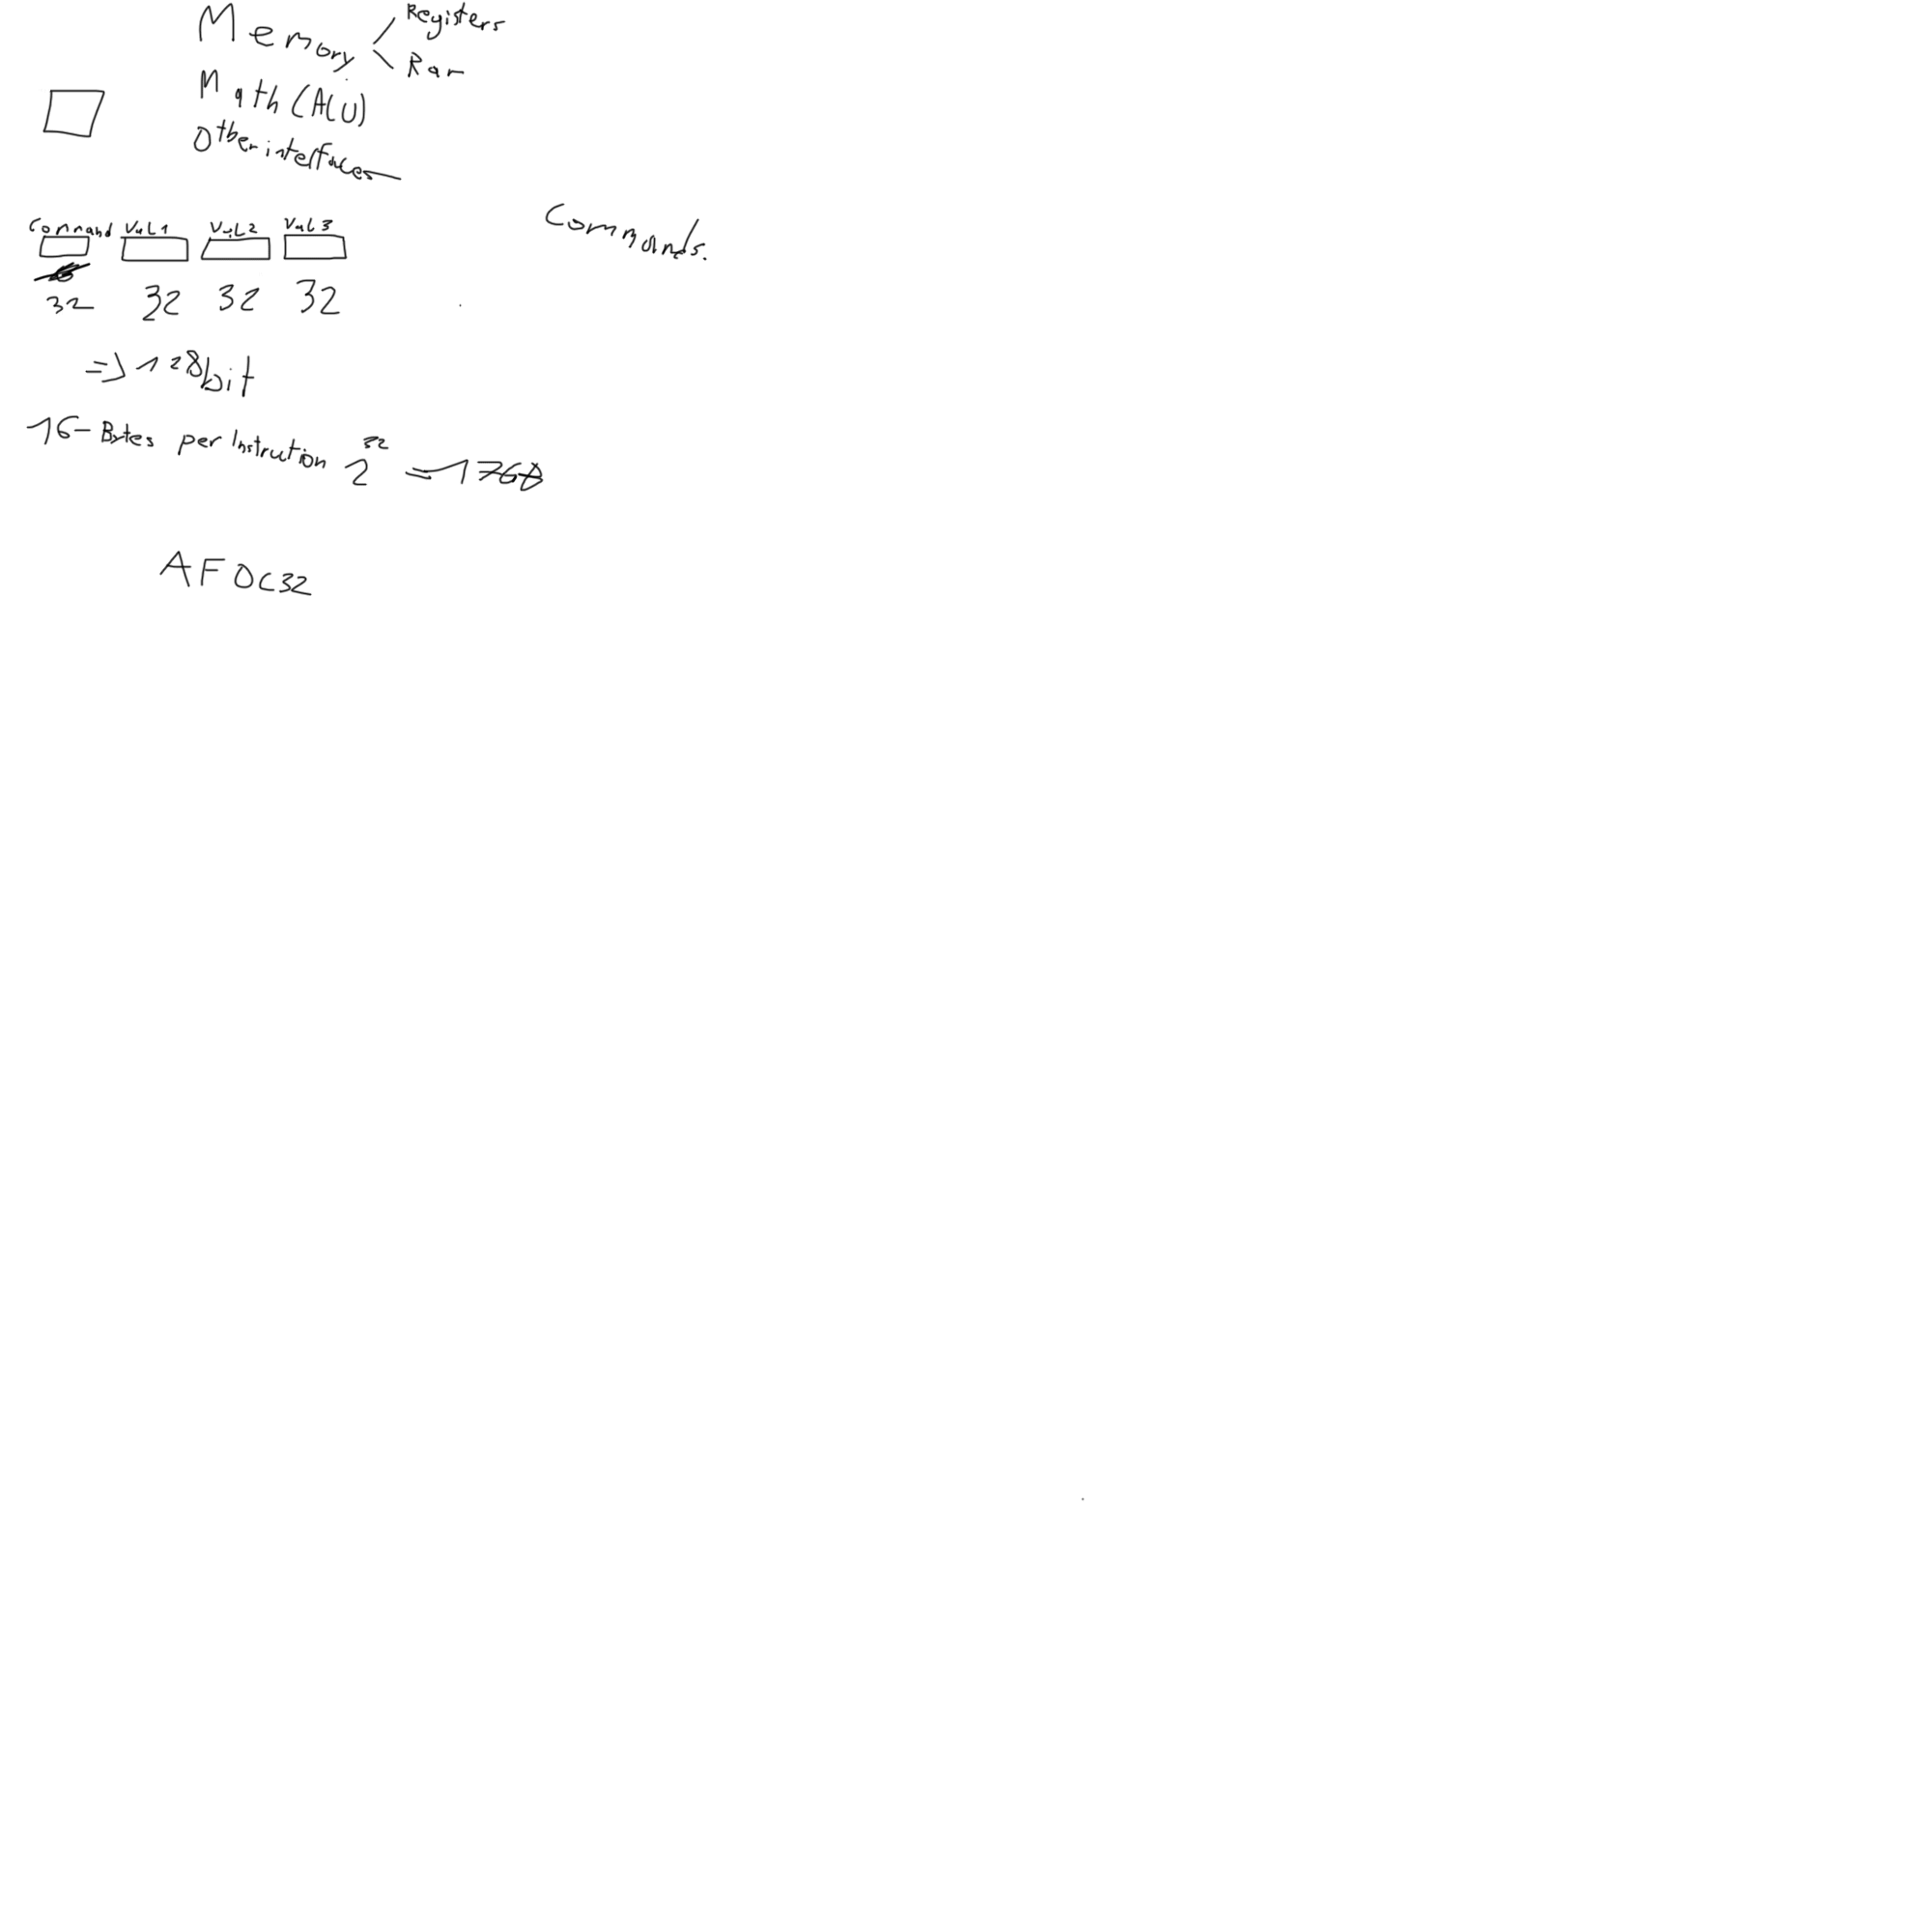 Memory < Registers
Ram
Math (ALU)
Other interfaces
Command Val1 Val2 Val3
32 32 32 32
=> 128bit
16-Bytes per Instruction 2^32 =
AF0C32
Commands.